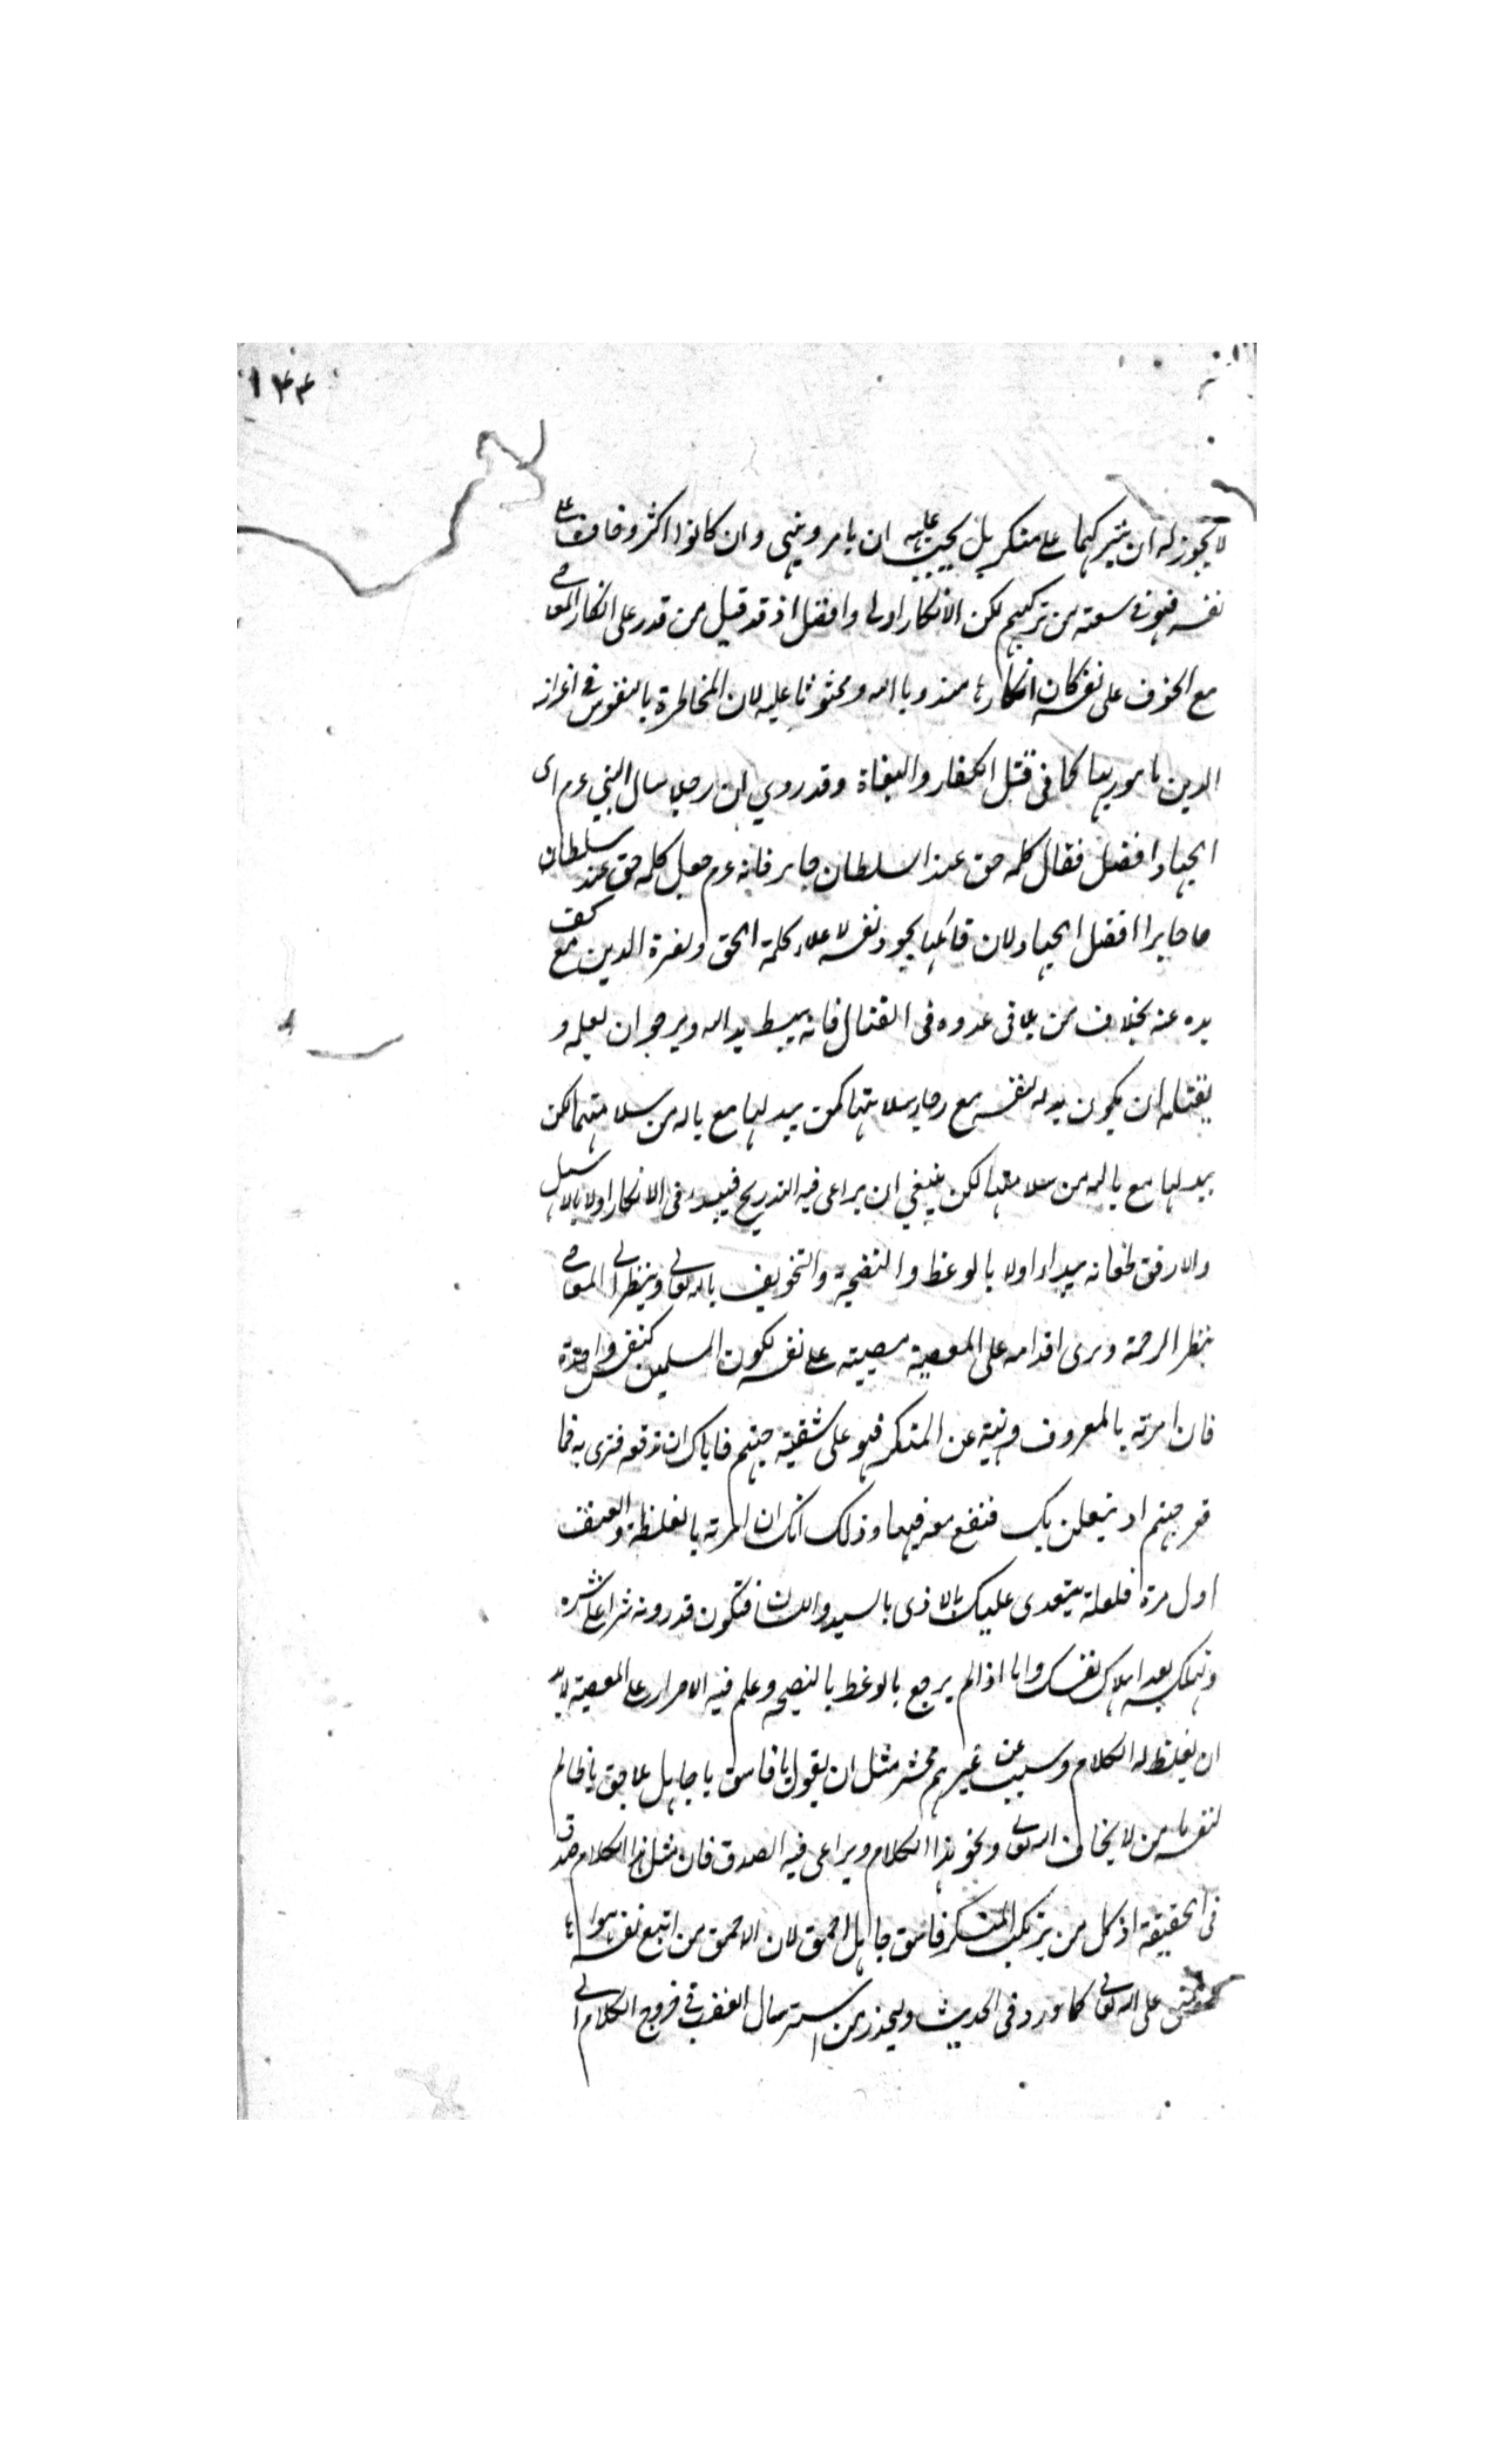 ١٤٤
لا يجوز له ان يتركهما على منكر بل يجب عليه ان يامر وينهى وان كانوا اكثر وخاف على
نفسه فهو فى سعة من تركهم لكن الانكار اولى وافضل اذ قد قيل من قدر على انكار المعاصى
مع الخوف على نفسه كان انكارها مندوبا اليه ومحثوثا عليه لان المخاطرة بالنفوس فى اعزاز
الدين مامور بها كما فى قتل الكفار والبغاة وقد روي ان رجلا سال النبي عم اى
الجهاد افضل فقال كلمه حق عند السلطان جابر فانه عم جعل كلمه حق عند سلطان
جابرا افضل الجهاد لان قائلها يجود نفسه لاعلاء كلمة الحق ونصرة الدين مع كف
يده عنه بخلاف من يلاقى عدوه فى القتال فانه يبسط يد اليه ويرجو ان يغلبه و
يقتله ان يكون بدله لنفسه مع رجاء سلامتها كمن يبدلها مع ياله من سلامتها لكن
يبدلها مع ياله من سلامتها لكن ينبغي ان يراعى فيه التدريج فيبدء فى الانكار اولا بالاسهل
والارفق فانه يبداء اولا بالوعظ والنصيحة والتخويف بالله تعالى وينظر الى المعاصى
بنظر الرحمة ويرى اقدامه على المعصية مصيبته على نفسه لكون المسلمين كنفس واحدة
فان امرته بالمعروف ونهيته عن المنكر فهو على شفية جهنم فاياك ان تدفعه فترى به فى
قعر جهنم او يتعلق بك فتقع معه فيها وذلك انك ان امرته بالغلظة والعنف
اول مرة فلعله يتعدى عليك بالاذى باليد واللسان فتكون قد زدته شرا على شره
وتهلكه بعد اهلاك نفسك واما اذا لم يرجع بالوعظ بالنصيحه وعلم فيه الاصرار على المعصية لابد
ان يغلظ له الكلام وسبب عن غير فحش مثل ان يقول يا فاسق يا جاهل يا احمق يا ظالم
لنفسه يا من لا يخاف الله تعالى ونحو هذا الكلام ويراعى فيه الصدق فان مثل هذا الكلام صدق
فى الحقيقة اذ كل من يرتكب المنكر فاسق جاهل احمق لان الاحمق من اتبع نفسه هواها
وتمنى على الله تعالى كما ورد فى الحديث وليحذر من استرسال الغضب فى خروج الكلام الى